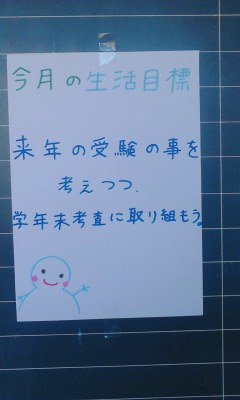 今月の生活目標
来年の受験の事を
考えつつ.
学年末考査に取り組もう。